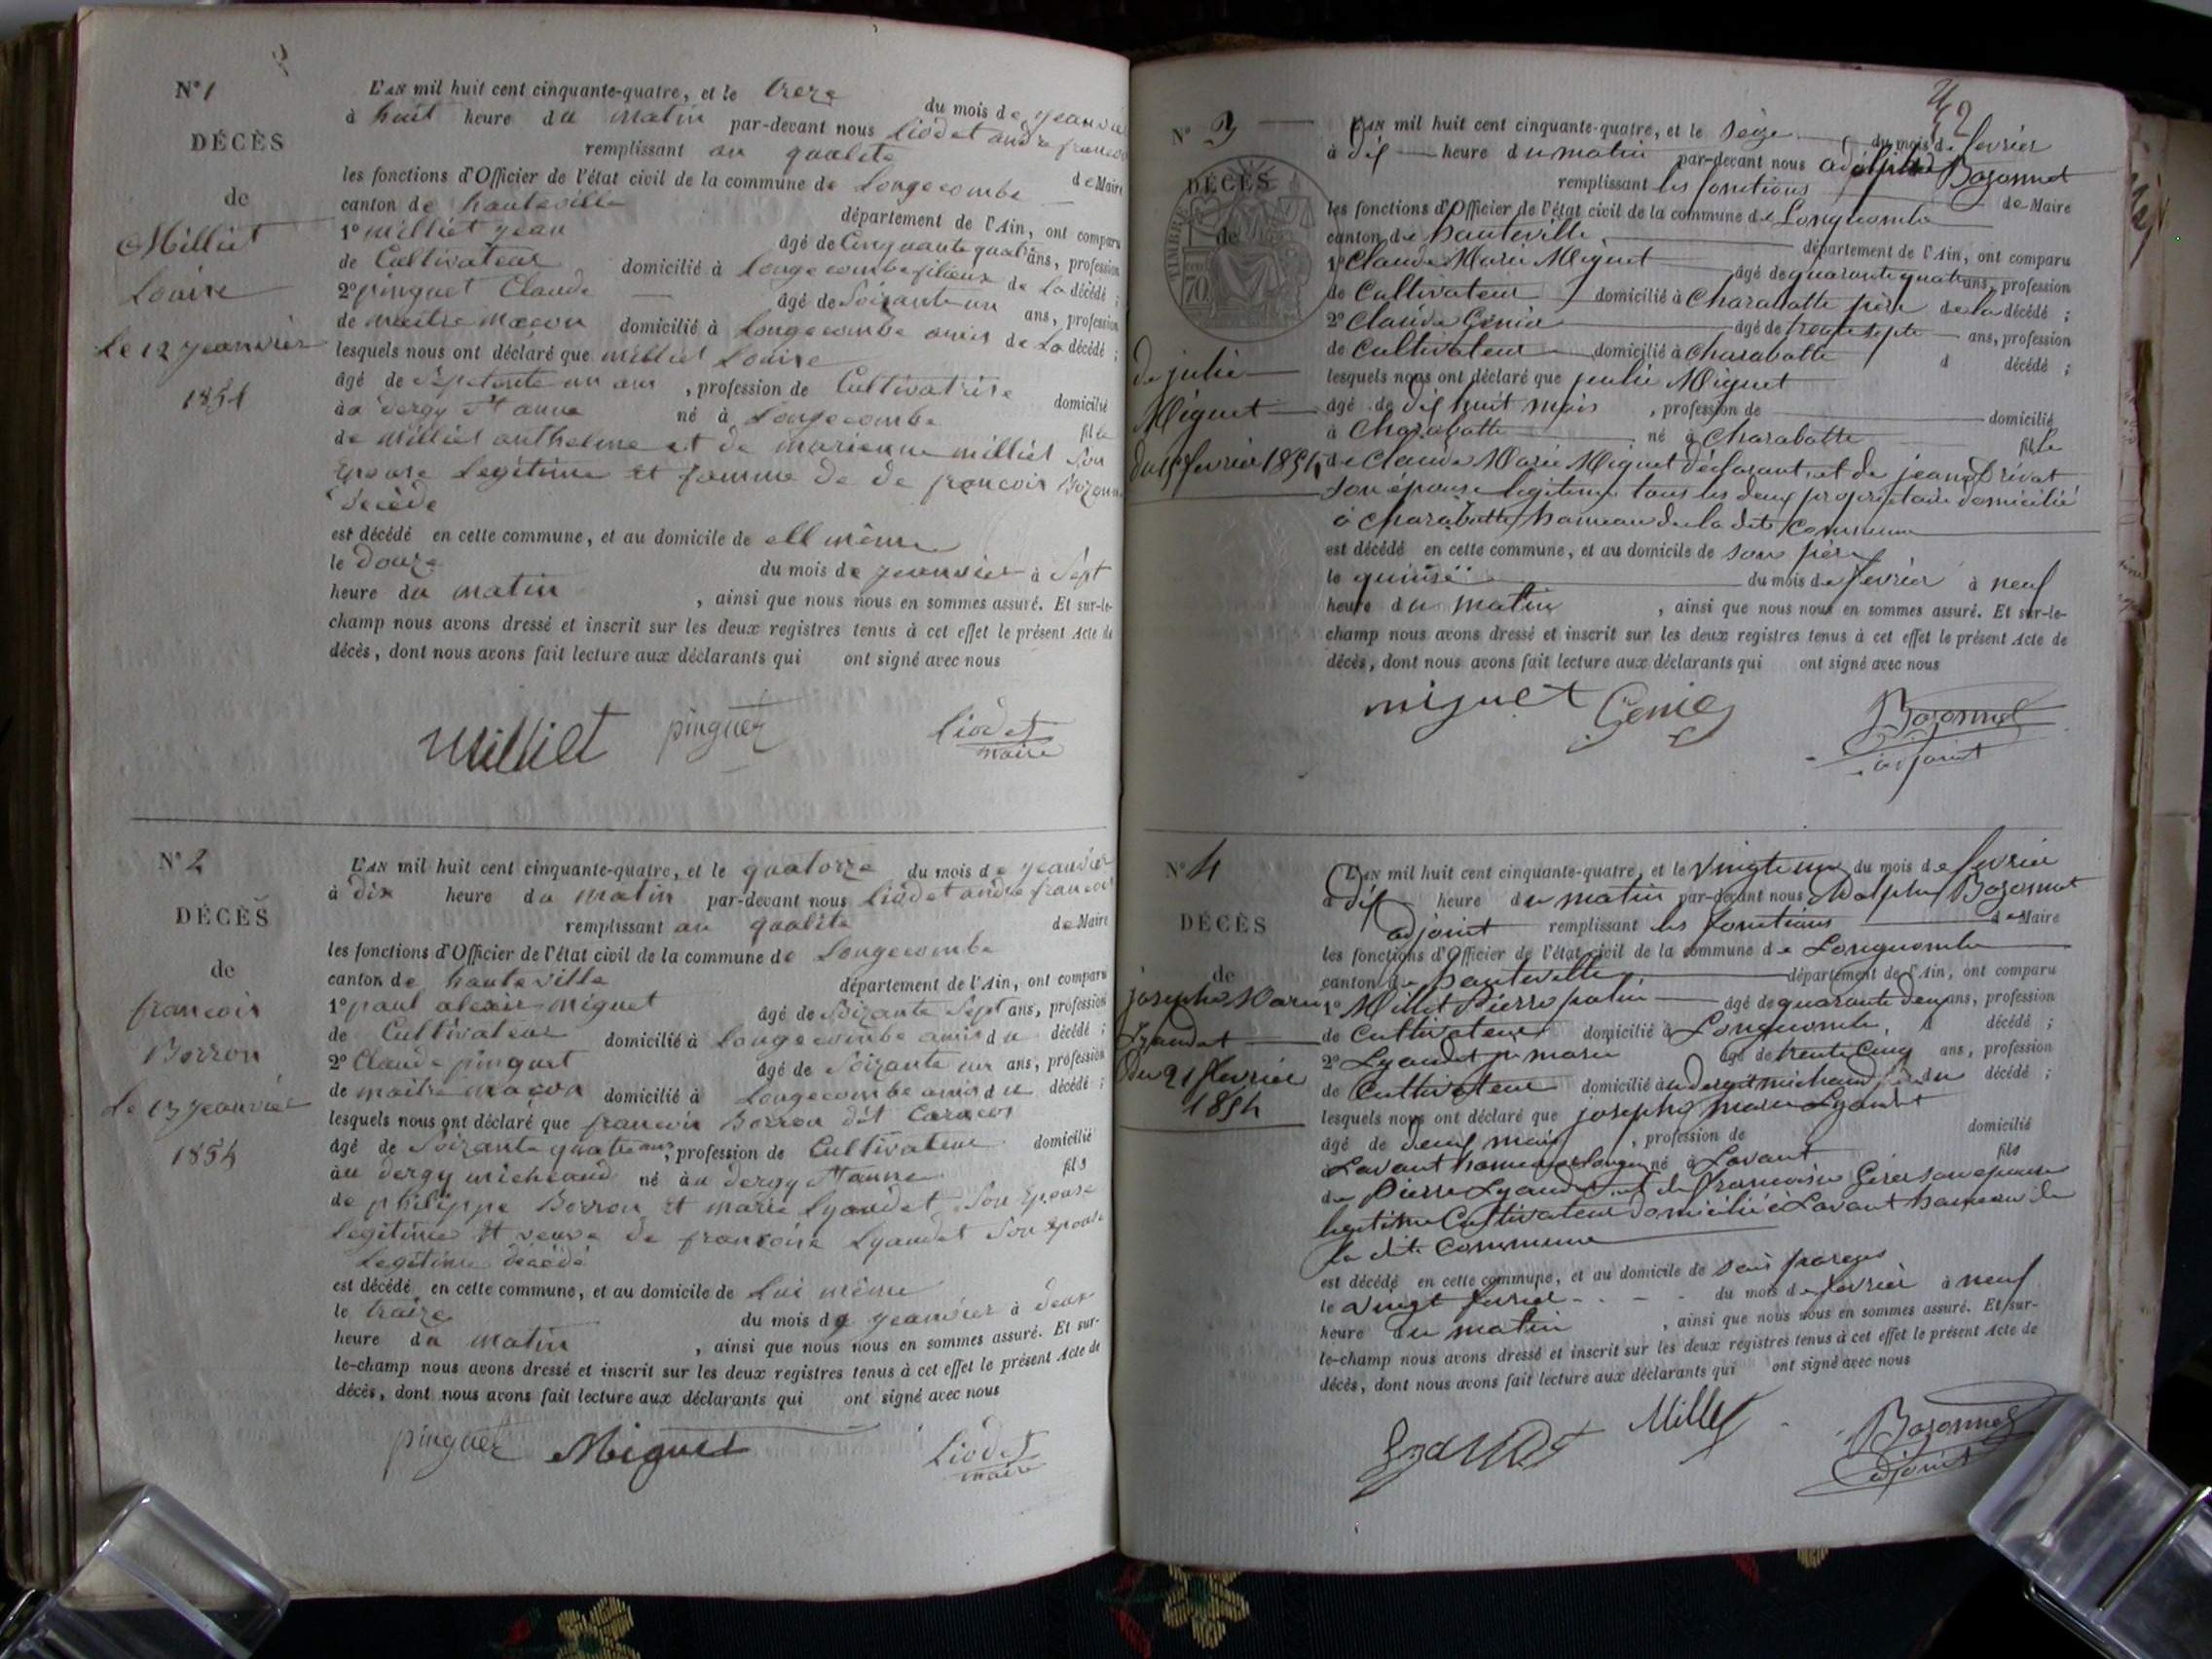 N° 1
DÉCÈS
de
Milliet
Louise
Le 12 jeanvier
1854
L'AN mil huit cent cinquante-quatre, et le treze du mois de jeanvier
à huit heure du matin par-devant nous Liodet andre francois
remplissant an qualite de Maire
les fonctions d'Officier de l'état civil de la commune de Longecombe
canton de hauteville département de l'Ain, ont comparu
1° milliet jean âgé de Cinquante quatr ans, profession
de Cultivateur domicilié à Longecombe de La décédé ;
2° pinguet Claude âgé de Soizante un ans, profession
de maitre macon domicilié à Longecombe amis de La décédé ;
lesquels nous ont déclaré que milliet Louise
âgé de Septente un ans, profession de Cultivatrise domicilié
àu dergy St anne né à Longecombe fille
de Milliet anthelme et de marienne milliet Son
Epouse Legitime et famme de de francois Bozonnet
décédé
est décédé en cette commune, et au domicile de ell même
le Douze du mois de jeanvier à Sept
heure du matin, ainsi que nous nous en sommes assuré. Et sur-le-
champ nous avons dressé et inscrit sur les deux registres tenus à cet effet le présent Acte de
décès, dont nous avons fait lecture aux déclarants qui ont signé avec nous
Milliet pinguet Liodet
maire
N° 2
DÉCÈS
de
francois
Borron
Le 13 jeanvier
1854
L'AN mil huit cent cinquante-quatre, et le quatorze du mois de jeanvier
à dix heure du matin par-devant nous Liodet andre francois
remplissant an qualite de Maire
les fonctions d'Officier de l'état civil de la commune de Longecombe
canton de hauteville département de l'Ain, ont comparu
1° paul alexis miguet âgé de Soizante Sept ans, profession
de Cultivateur domicilié à Longecombe amis du décédé ;
2° Claude pinguet âgé de Soizante un ans, profession
de maitre macon domicilié à Longecombe amis du décédé ;
lesquels nous ont déclaré que francois Borron dit
âgé de Soizante quatre ans, profession de Cultivateur domicilié
àu dergy micheaud né àu dergy St anne fils
de philippe Borron et marie Lyaudet Son Epouse
Legitime et veuve de francoise Lyaudet Son Epouse
Legitime décédé
est décédé en cette commune, et au domicile de Lui même
le traize du mois de jeanvier à deux
heure du matin, ainsi que nous nous en sommes assuré. Et sur-
le-champ nous avons dressé et inscrit sur les deux registres tenus à cet effet le présent Acte de
décès, dont nous avons fait lecture aux déclarants qui ont signé avec nous
pinguet Miguet Liodet
maire
N° 3
DÉCÈS
de
TIMBRE
70
De julie
Miguet
du 15 fevrier 1854
L'AN mil huit cent cinquante-quatre, et le seize du mois de fevrier
à dix heure du matin par-devant nous adolphe Bozonnet
remplissant les fonctions de Maire
les fonctions d'Officier de l'état civil de la commune de Longecombe
canton de hauteville, département de l'Ain, ont comparu
1° Claude Marie Miguet âgé de quarante quatre ans, profession
de Cultivateur domicilié à Charabotte père de la décédé ;
2° Claude Génie âgé de trente septe ans, profession
de Cultivateur domicilié à Charabotte d décédé ;
lesquels nous ont déclaré que julie Miguet
âgé de dix huit mois, profession de domicilié
à Charabotte né à Charabotte fille
de Claude Marie Miguet déclarant et de jeanne Privat
son épouse legitime tous les deux propriétaire domicilié
à Charabotte hameau de la dite Commune
est décédé en cette commune, et au domicile de son père
le quinze du mois de fevrier à neuf
heure du matin, ainsi que nous nous en sommes assuré. Et sur-le-
champ nous avons dressé et inscrit sur les deux registres tenus à cet effet le présent Acte de
décès, dont nous avons fait lecture aux déclarants qui ont signé avec nous
miguet Génie Bozonnet
adjoint
N° 4
DÉCÈS
de
josephe Marie
Lyaudet
Du 21 fevrier
1854
L'AN mil huit cent cinquante-quatre, et le Vingt un du mois de fevrier
à dix heure du matin par-devant nous Adolphe Bozonnet
adjoint remplissant les fonctions de Maire
les fonctions d'Officier de l'état civil de la commune de Longecombe
canton de hauteville département de l'Ain, ont comparu
1° Millet Pierre âgé de quarante deux ans, profession
de Cultivateur domicilié à Longecombe, d décédé ;
2° Lyaudet marie âgé de trente Cinq ans, profession
de Cultivateur domicilié au dergit michaud du décédé ;
lesquels nous ont déclaré que josephe marie Lyaudet
âgé de neuf mois, profession de domicilié
à Lavant hameau né à Lavant fils
de Pierre Lyaudet et de francoise son epouse
legitime Cultivateur domicilié à Lavant hameau de
la dite Commune
est décédé en cette commune, et au domicile de
le Vingt du mois de fevrier à neuf
heure du matin, ainsi que nous nous en sommes assuré. Et sur-
le-champ nous avons dressé et inscrit sur les deux registres tenus à cet effet le présent Acte de
décès, dont nous avons fait lecture aux déclarants qui ont signé avec nous
Lyaudet Millet Bozonnet
adjoint